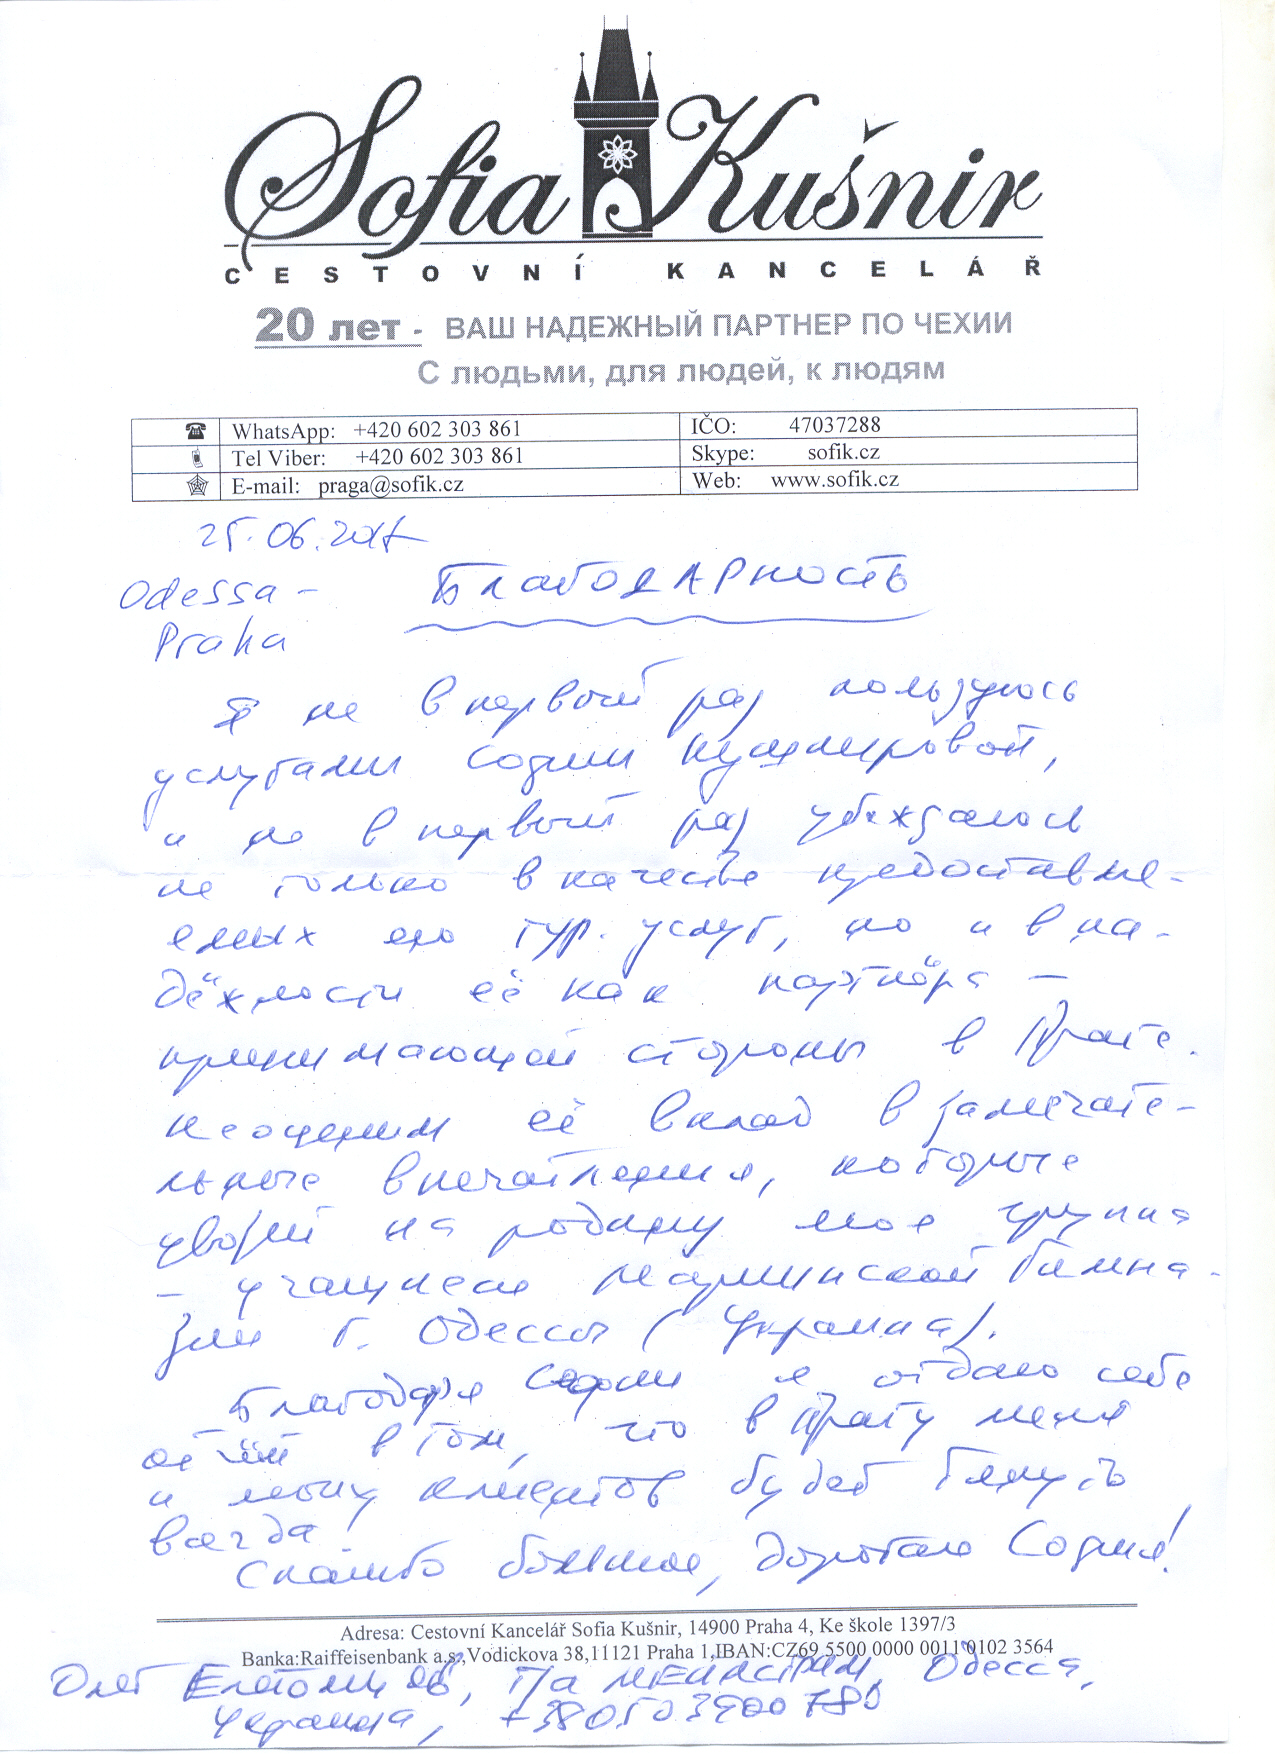 Sofia Kušnir
CESTOVNÍ KANCELÁŘ
20 лет - ВАШ НАДЕЖНЫЙ ПАРТНЕР ПО ЧЕХИИ
С людьми, для людей, к людям
WhatsApp: +420 602 303 861 IČO: 47037288
Tel Viber: +420 602 303 861 Skype: sofik.cz
E-mail: praga@sofik.cz Web: www.sofik.cz
25.06.2017
Odessa - Благодарность
Praha
Я не в первый раз пользуюсь
услугами Софии Кушнировой,
и не в первый раз убеждаюсь
не только в качестве предоставля-
емых ею тур. услуг, но и в на-
дёжности её как партнёра —
принимающей стороны в Праге.
Неоценим её вклад в замечате-
льные впечатления, которые
увозит на родину моя группа
- учащиеся Мариинской Гимна-
зии г. Одессы (Украина).
Благодаря Софии я отдаю себе
отчёт в том, что в Прагу меня
и моих клиентов будет тянуть
всегда!
Спасибо большое, дорогая София!
Adresa: Cestovní Kancelář Sofia Kušnir, 14900 Praha 4, Ke škole 1397/3
Banka:Raiffeisenbank a.s.,Vodickova 38,11121 Praha 1,IBAN:CZ69 5500 0000 0011 0102 3564
Олег т/а Одесса,
Украина, +380503900780